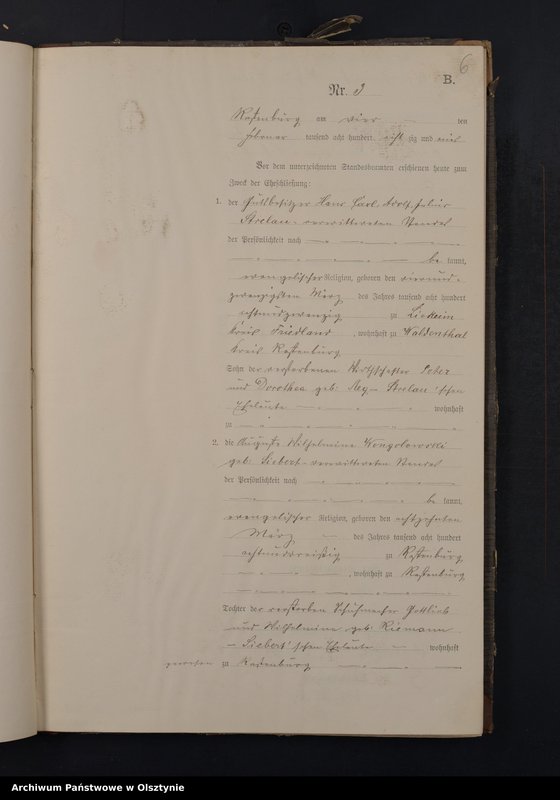 6
B.
Nr. 3
Rastenburg am vier ten
Februar tausend acht hundert acht zig und
Vor dem unterzeichneten Standesbeamten erschienen heute zum
Zweck der Eheschließung:
1. der Gutsbesitzer Hans Carl Adolf Julius
Strelau verwittweten Standes
der Persönlichkeit nach
be kannt,
evangelischer Religion, geboren den vierund-
zwanzigsten März des Jahres tausend acht hundert
achtundzwanzig zu
Kreis Friedland, wohnhaft zu Waldenthal
Kreis Rastenburg
Sohn der verstorbenen Peter
und Dorothea geb. Strelau'schen
Eheleute wohnhaft
zu
2. die Auguste Wilhelmine
geb. Siebert verwittweten Standes
der Persönlichkeit nach
be kannt,
evangelischer Religion, geboren den achtzehnten
März des Jahres tausend acht hundert
achtunddreißig zu Rastenburg
, wohnhaft zu Rastenburg
Tochter der verstorben Schuhmacher Gottlieb
und Wilhelmine geb. Riemann
Siebert'schen Eheleute wohnhaft
gewesen zu Rastenburg
Archiwum Państwowe w Olsztynie